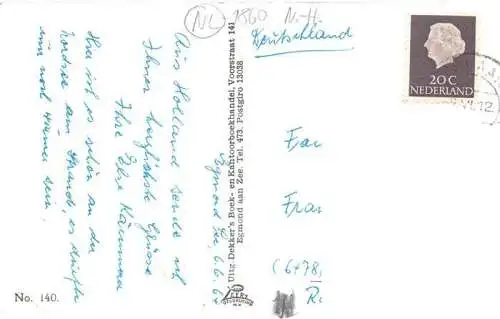 NL 1560 N.-H.
Deutschland
20 C
NEDERLAND
Egmond
6.6.6
Aus Holland sende ich
Ihnen herzlichste Grüsse
Ihre Else
Hier ist es schön an der
Nordsee am Strand, es dürfte
nur noch wärmer sein.
Uitg Dekker's Boek- en Kantoorboekhandel, Voorstraat 141
Egmond aan Zee. Tel. 473. Postgiro 13038
Frau
Frau
(6478)
No. 140.